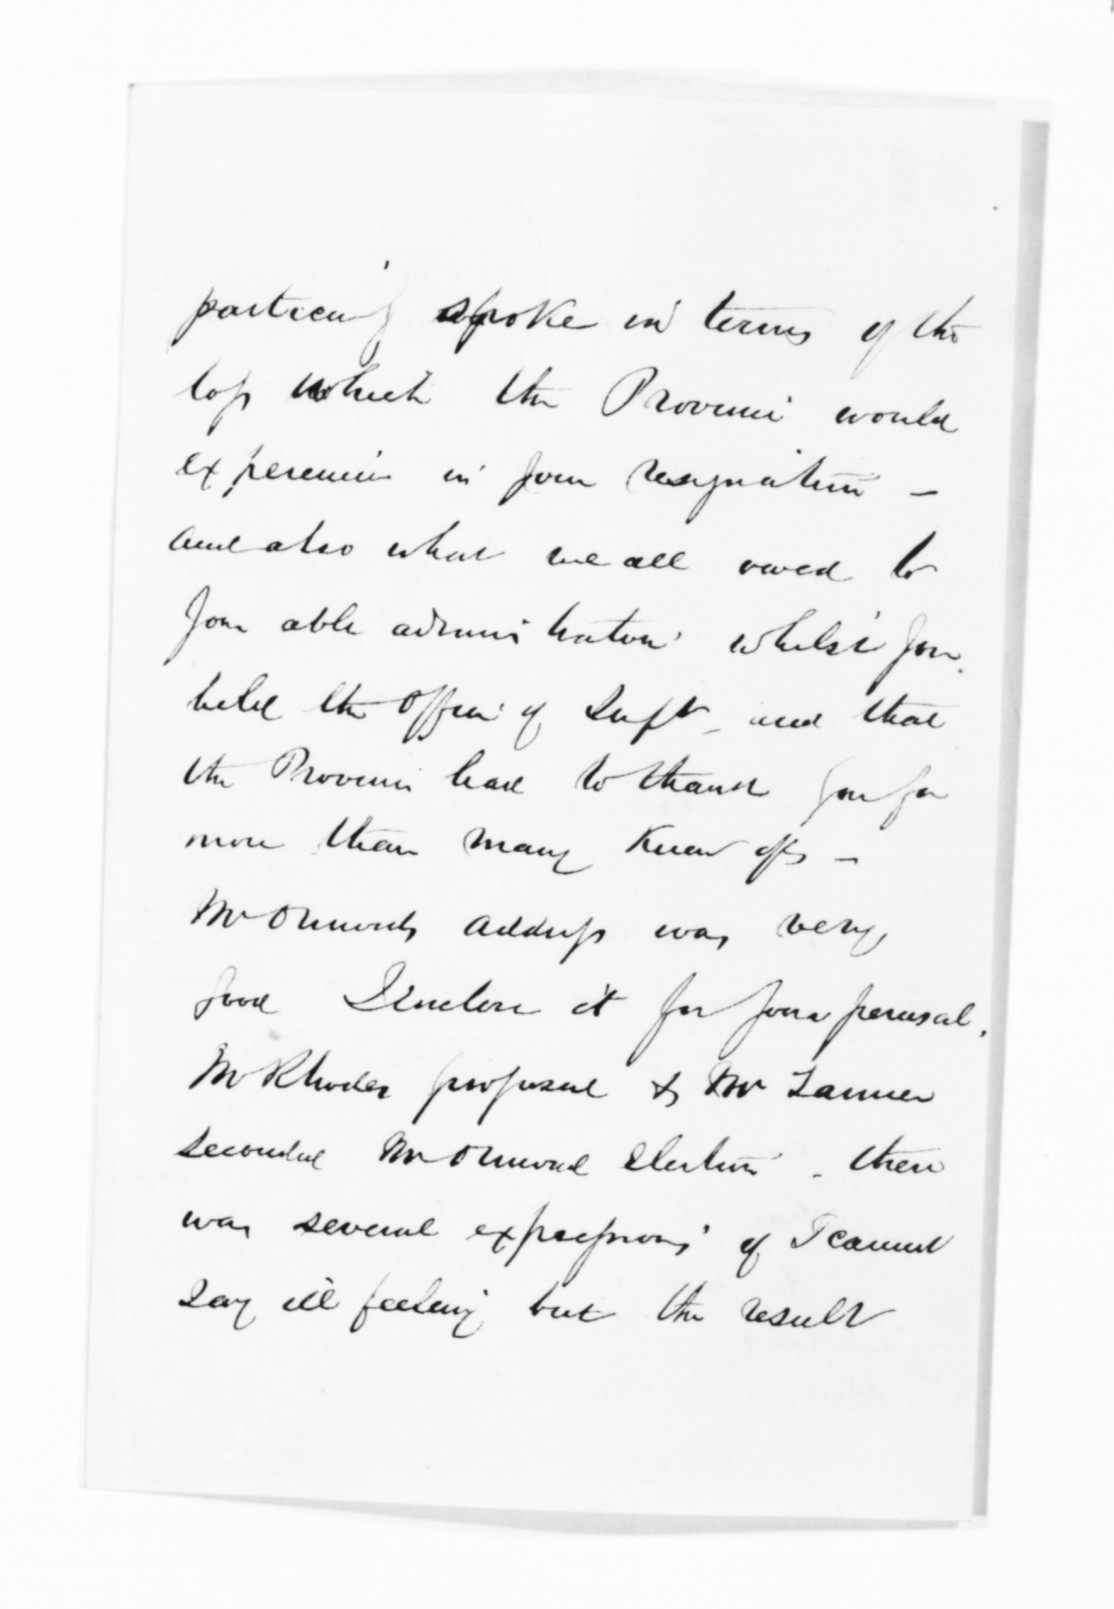 particularly spoke in terms of the
loss which the Province would
experience in your resignation —
and also what we all owed to
your able administration whilst you
held the Office of Supt_ and that
the Province had to thank you for
more than many knew of —
Mr Ormonds address was very
good I enclose it for your perusal.
Mr Rhodes proposed & Mr Tanner
seconded Mr Ormond election . there
was several expressions of I cannot
say ill feeling but the result